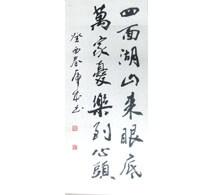 四面湖山来眼底
萬家憂樂到心頭
癸酉春